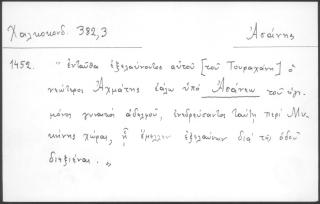 Χαλκοκονδ. 382,3
Ἀσάνης
1452. " ἐνταῦθα ἐξελαύνοντος αὐτοῦ [τοῦ Τουραχάνη] ὁ
νεώτερος Ἀχμάτης ἑάλω ὑπὸ Ἀσάνεω τοῦ ἡγε-
μόνος γυναικὸς ἀδελφοῦ, ἐνεδρεύσαντος ταύτῃ περὶ Μυ-
κήνης χώραν, ᾗ ἔμελλεν ἐξελαύνων διὰ τῆς ὁδοῦ
διεξιέναι. »